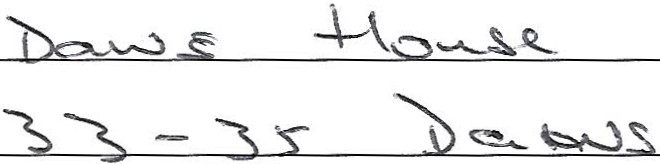 Daws House
33-35 Daws